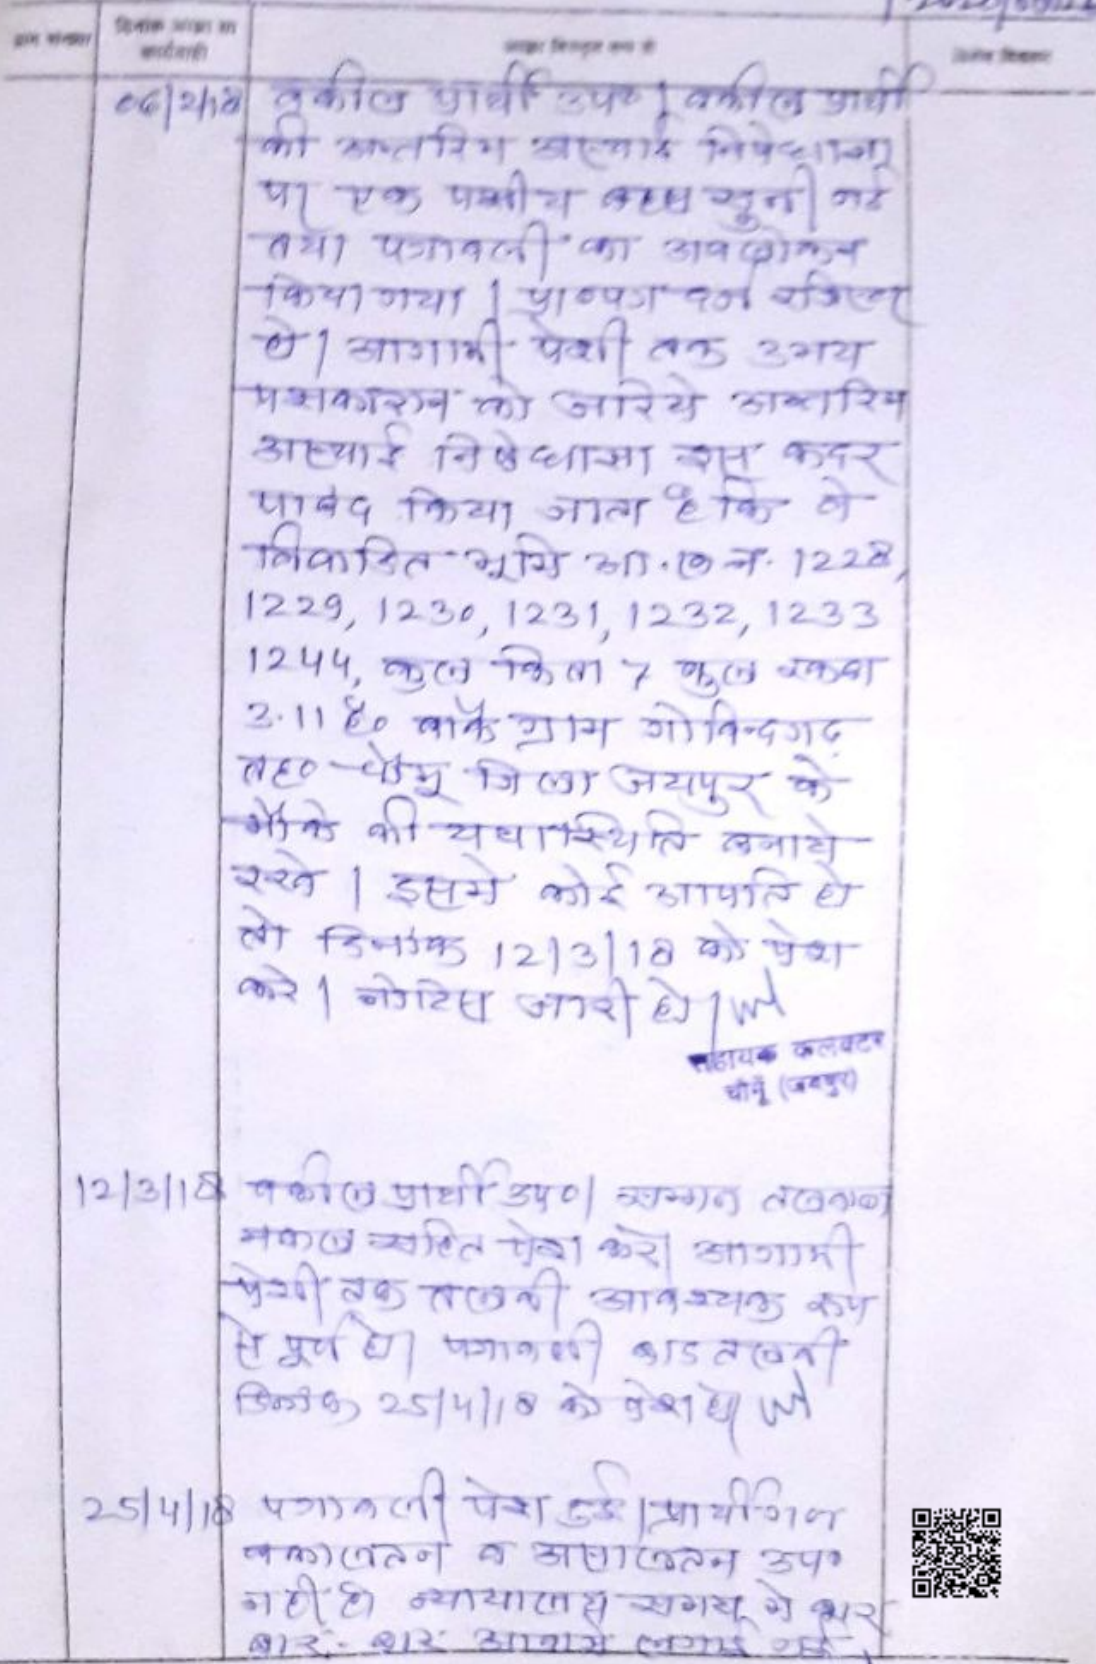 क्रम संख्या
दिनांक आज्ञा या
कार्यवाही
आज्ञा विस्तृत रूप से
06/2/18 वकील प्रार्थी उप० | वकील प्रार्थी
की अन्तरिम अस्थाई निषेधाज्ञा
पर एक पक्षीय बहस सुनी गई
तथा पत्रावली का अवलोकन
किया गया | प्रा०पत्र दर्ज रजिस्टर
हो | आगामी पेशी तक उभय
पक्षकारान को जरिये अन्तरिम
अस्थाई निषेधाज्ञा इस कदर
पाबंद किया जाता है कि वे
विवादित भूमि आ.ख.न. 1228,
1229, 1230, 1231, 1232, 1233
1244, कुल किता 7 कुल रकबा
3.11 है० वाकै ग्राम गोविन्दगढ़
तह० चौमू जिला जयपुर के
मौके की यथास्थिति बनाये
रखे | इसमे कोई आपति हो
तो दिनांक 12/3/18 को पेश
करे | नोटिस जारी हो |
सहायक कलक्टर
चौमूँ (जयपुर)
12/3/18 वकील प्रार्थी उप० | सम्मन तलबाना
नकल सहित पेश करे | आगामी
पेशी तक तलबी आवश्यक रूप
से पूर्ण हो | पत्रावली बाद तलबी
दिनांक 25/4/18 को पेश हो |
25/4/18 पत्रावली पेश हुई | प्रार्थीगण
वकालतन व असालतन उप०
नही है | न्यायालय समय मे
बार - बार आवाजे लगाई गई,